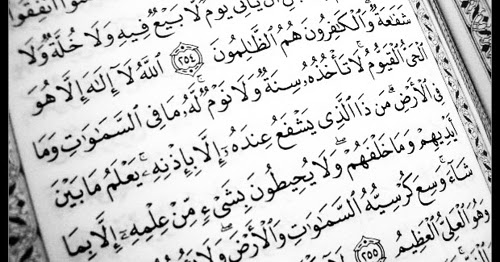 أَنفِقُوا۟
أَن يَأْتِىَ يَوْمٌ لَّا بَيْعٌ فِيهِ وَلَا خُلَّةٌ وَلَا
شَفَٰعَةٌ وَٱلْكَٰفِرُونَ هُمُ ٱلظَّٰلِمُونَ ٢٥٤ ٱللَّهُ لَآ إِلَٰهَ إِلَّا هُوَ
ٱلْحَىُّ ٱلْقَيُّومُ لَا تَأْخُذُهُۥ سِنَةٌ وَلَا نَوْمٌ لَّهُۥ مَا فِى ٱلسَّمَٰوَٰتِ وَمَا
فِى ٱلْأَرْضِ مَن ذَا ٱلَّذِى يَشْفَعُ عِندَهُۥٓ إِلَّا بِإِذْنِهِۦ يَعْلَمُ مَا بَيْنَ
أَيْدِيهِمْ وَمَا خَلْفَهُمْ وَلَا يُحِيطُونَ بِشَىْءٍ مِّنْ عِلْمِهِۦٓ إِلَّا بِمَا
شَآءَ وَسِعَ كُرْسِيُّهُ ٱلسَّمَٰوَٰتِ وَٱلْأَرْضَ وَلَا
وَهُوَ ٱلْعَلِىُّ ٱلْعَظِيمُ ٢٥٥ لَآ